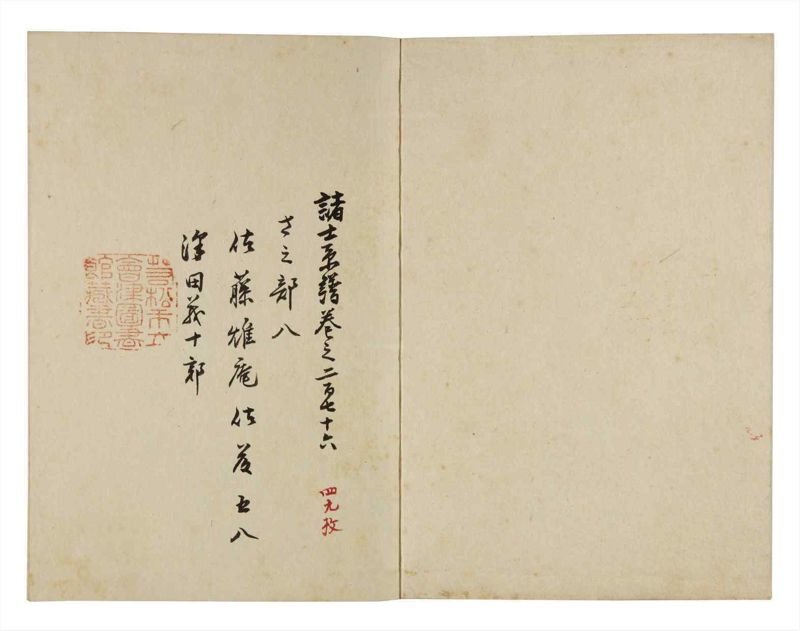 諸士系譜巻之二百七十六
四九枚
さ之部八
佐藤雄庵 佐藤五八
澤田義十郎
若松市立
會津圖書
館藏書印